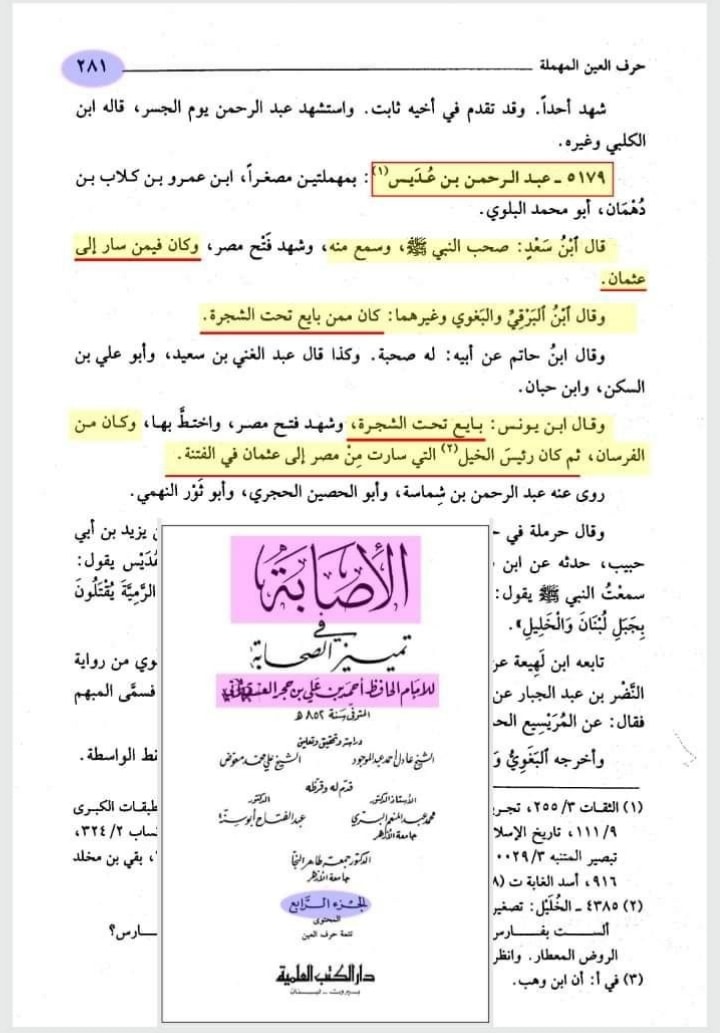 حرف العين المهملة ٢٨١
شهد أحداً. وقد تقدم في أخيه ثابت. واستشهد عبد الرحمن يوم الجسر، قاله ابن
الكلبي وغيره.
٥١٧٩ ـ عبد الرحمن بن عُدَيس(١): بمهملتين مصغراً، ابن عمرو بن كلاب بن
دُهْمَان، أبو محمد البلوي.
قال ٱبْنُ سَعْدٍ: صحب النبي ﷺ، وسمع منه، وشهد فَتْح مصر، وكان فيمن سار إلى
عثمان.
وقال ٱبْنُ ٱلبَرْقِيِّ والبَغوي وغيرهما: كان ممن بايع تحت الشجرة.
وقال ابنُ حاتم عن أبيه: له صحبة. وكذا قال عبد الغني بن سعيد، وأبو علي بن
السكن، وابن حبان.
وقال ابن يونس: بايع تحت الشجرة، وشهد فتح مصر، واختطَّ بها، وكان من
الفرسان، ثم كان رئيسَ الخيل(٢) التي سارت مِنْ مصر إلى عثمان في الفتنة.
روى عنه عبد الرحمن بن شِماسة، وأبو الحصين الحجري، وأبو ثَوْر النهمي.
وقال حرملة في
ن يزيد بن أبي
حبيب، حدثه عن ابن
عُدَيْس يقول:
سمعْتُ النبي ﷺ يقول:
الرَّمِيَّةَ يُقْتَلُونَ
بِجَبَلِ لُبْنَانَ وَالْخَلِيلِ».
تابعه ابن لَهِيعة عن
وي من رواية
النَّضْر بن عبد الجبار عن
فسمَّى المبهم
فقال: عن المُرَيْسيع
وأخرجه ٱلبَغَوِيُّ
قط الواسطة.
(١) الثقات ٣/ ٢٥٥، تجر
طبقات الكبرى
٩/ ١١١، تاريخ الإسلا
ساب ٢/ ٣٢٤،
تبصير المتنبه ٣/
بقي بن مخلد
٩١٦، أسد الغابة ت
(٢) ٤٣٨٥ ـ الخُلَيْل: تصغير
ألست بفارس
ـارس؟
الروض المعطار. وانظر
(٣) في أ: أن ابن وهب.
الأصابة
في
تمييز الصحابة
للإمام الحافظ أحمد بن علي بن حجر العسقلاني
المتوفى سنة ٨٥٢ هـ
دراسة وتحقيق وتعليق
الشيخ عادل أحمد عبد الموجود الشيخ علي محمد معوض
قدم له وقرظه
الأستاذ الدكتور الدكتور
محمد عبد المنعم البري عبد الفتاح أبو سنة
جامعة الأزهر
الدكتور جمعة طاهر النجا
جامعة الأزهر
الجزء الرابع
المحتوى
تتمة حرف العين
دار الكتب العلمية
بيروت ـ لبنان